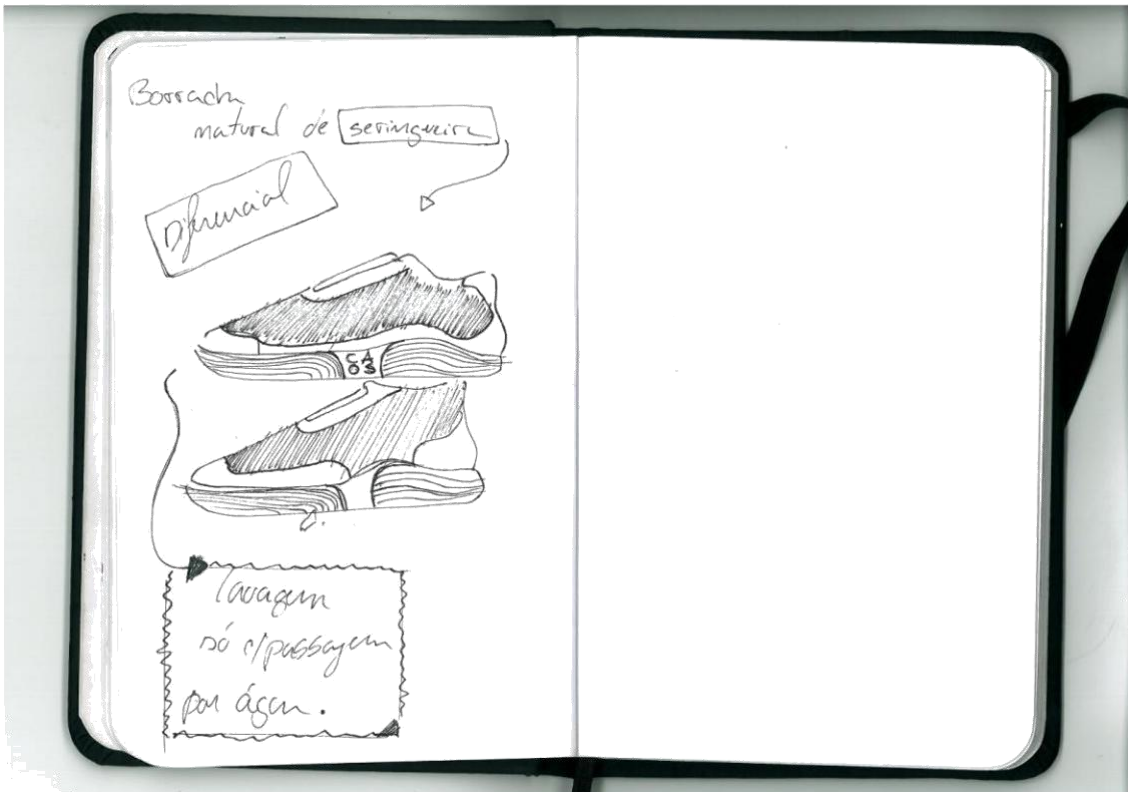 Borracha
natural de seringueira
Diferencial
CA
OS
lavagem
só c/passagem
por água.